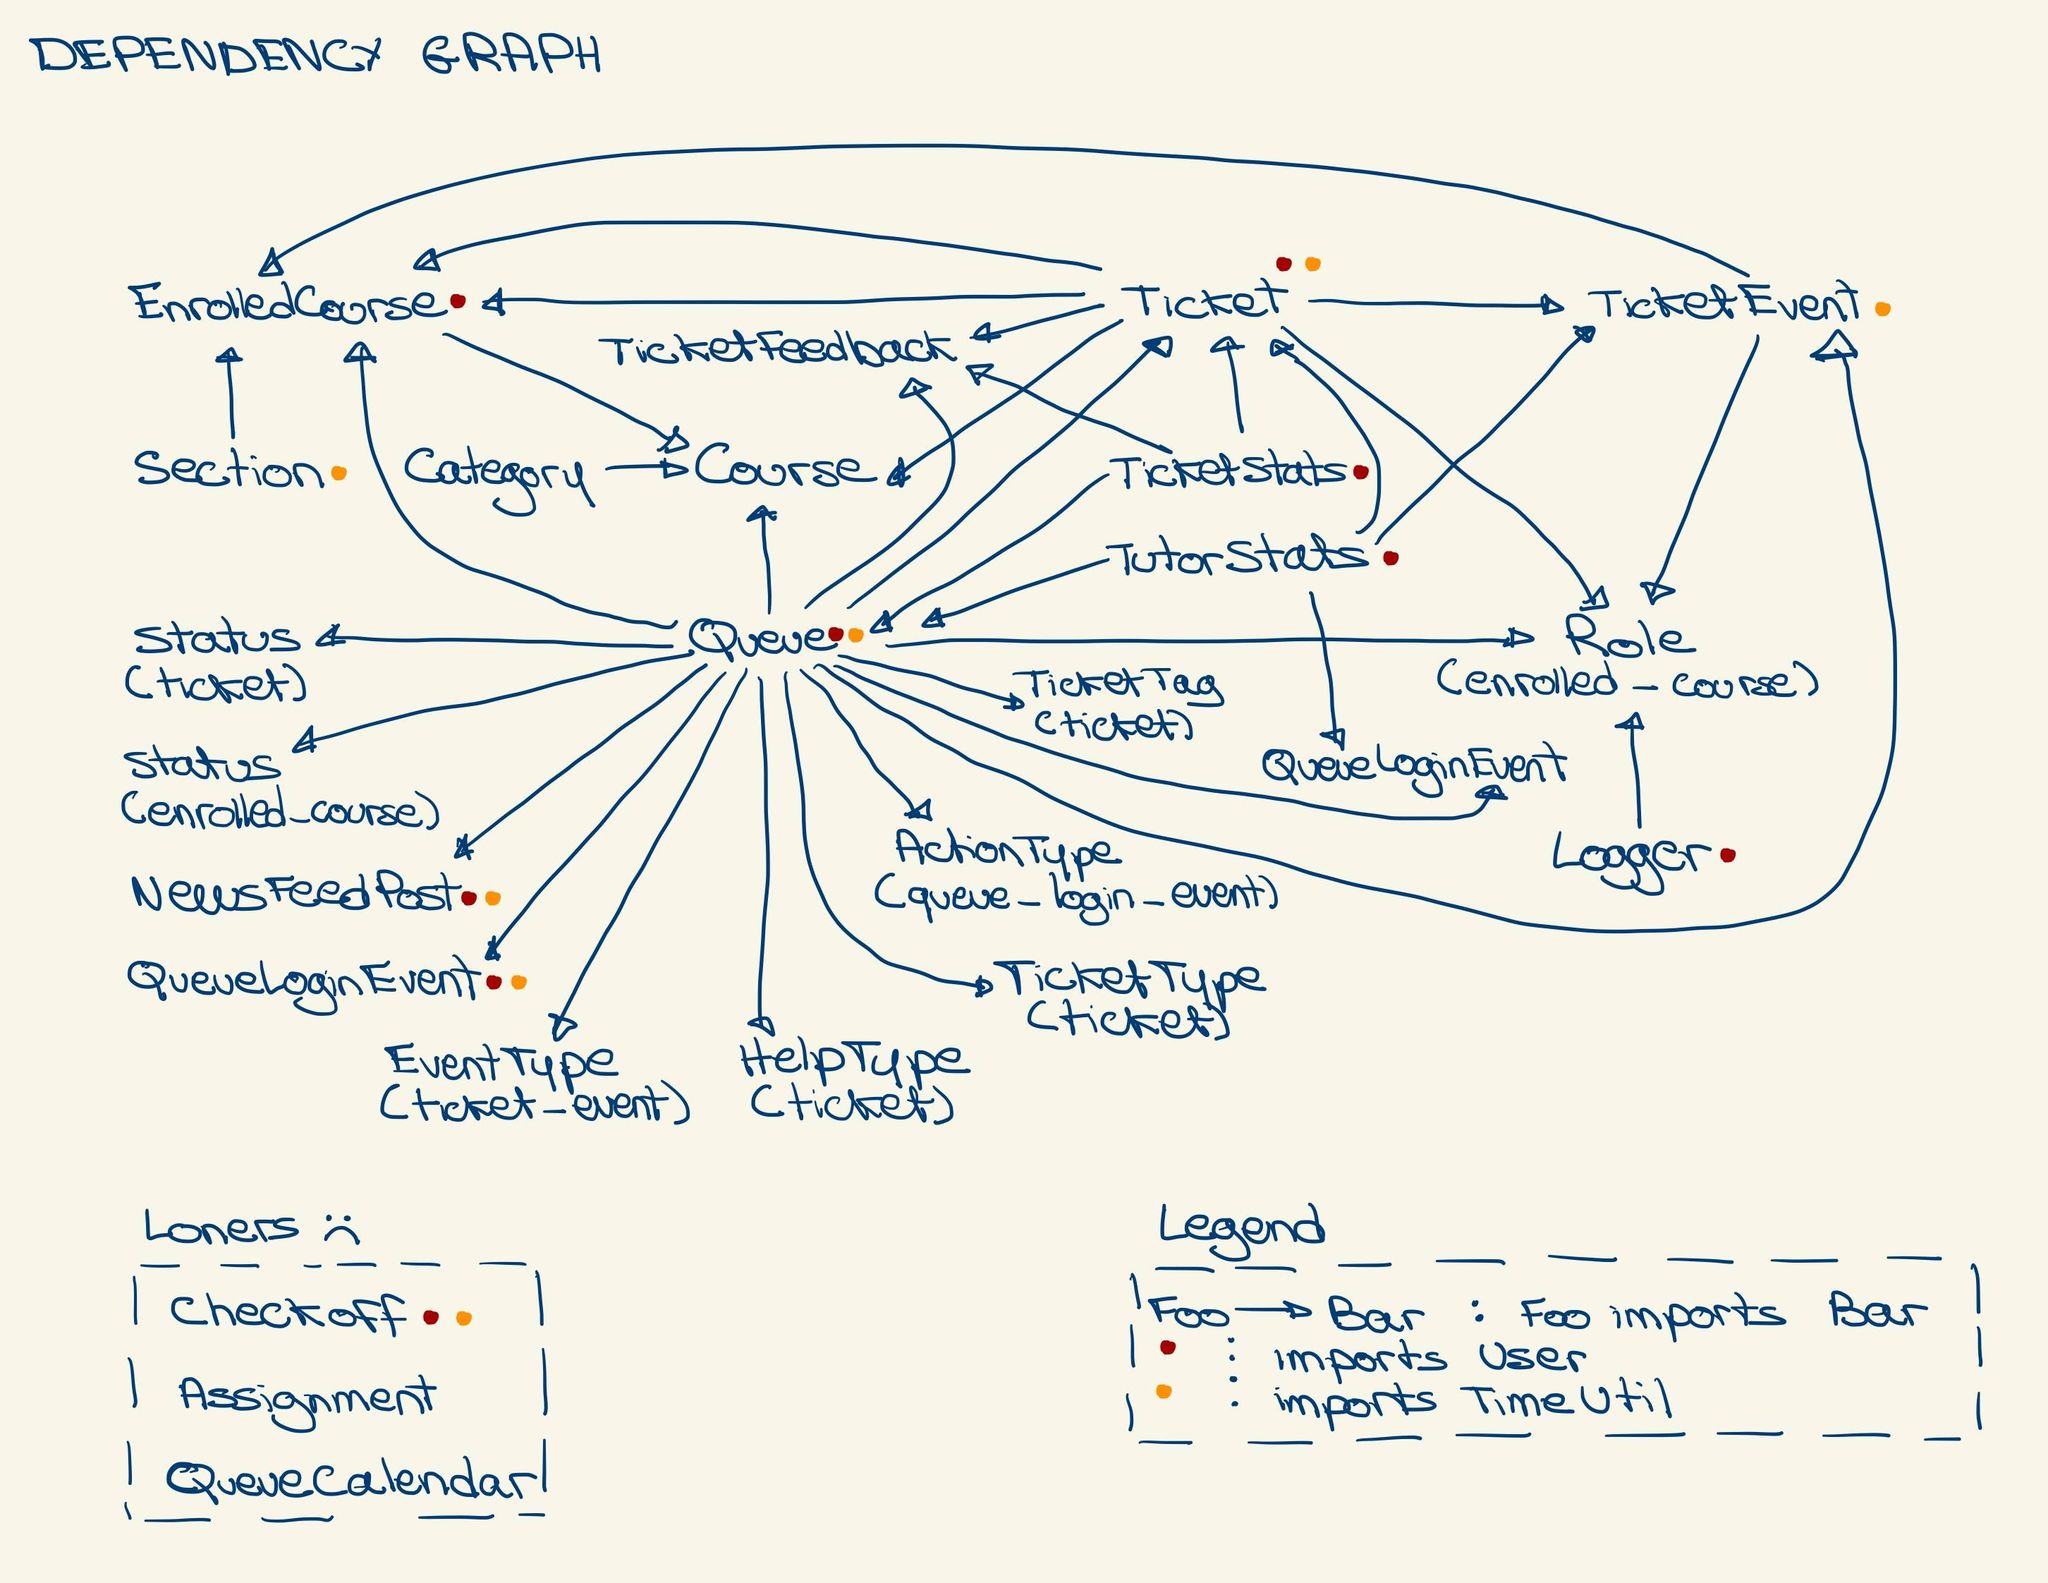 DEPENDENCY GRAPH
EnrolledCourse
Ticket
TicketEvent
TicketFeedback
Section
Category
Course
TicketStats
TutorStats
Status
(ticket)
Queue
Role
(enrolled_course)
TicketTag
(ticket)
Status
(enrolled_course)
QueueLoginEvent
ActionType
(queue_login_event)
Logger
NewsFeedPost
QueueLoginEvent
TicketType
(ticket)
EventType
(ticket_event)
HelpType
(ticket)
Loners :(
Checkoff
Assignment
QueueCalendar
Legend
Foo → Bar : Foo imports Bar
: imports User
: imports TimeUtil